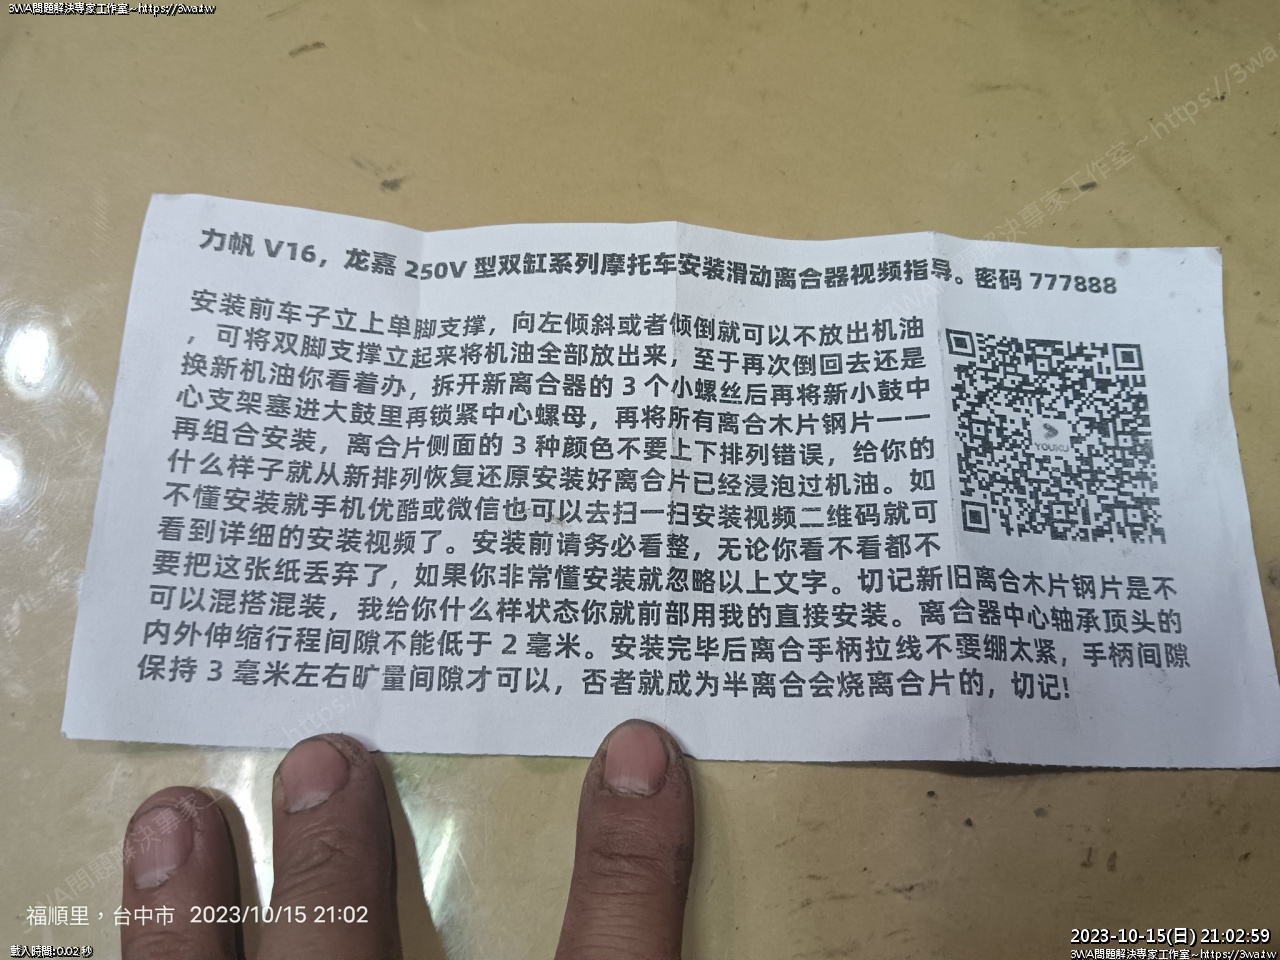 3WA問題解決專家工作室~https://3wa.tw
力帆 V16，龙嘉 250V 型双缸系列摩托车安装滑动离合器视频指导。密码 777888
安装前车子立上单脚支撑，向左倾斜或者倾倒就可以不放出机油
，可将双脚支撑立起来将机油全部放出来，至于再次倒回去还是
换新机油你看着办，拆开新离合器的 3 个小螺丝后再将新小鼓中
心支架塞进大鼓里再锁紧中心螺母，再将所有离合木片钢片一一
再组合安装，离合片侧面的 3 种颜色不要上下排列错误，给你的
什么样子就从新排列恢复还原安装好离合片已经浸泡过机油。如
不懂安装就手机优酷或微信也可以去扫一扫安装视频二维码就可
看到详细的安装视频了。安装前请务必看整，无论你看不看都不
要把这张纸丢弃了，如果你非常懂安装就忽略以上文字。切记新旧离合木片钢片是不
可以混搭混装，我给你什么样状态你就前部用我的直接安装。离合器中心轴承顶头的
内外伸缩行程间隙不能低于 2 毫米。安装完毕后离合手柄拉线不要绷太紧，手柄间隙
保持 3 毫米左右旷量间隙才可以，否者就成为半离合会烧离合片的，切记!
YOUKU
福順里，台中市 2023/10/15 21:02
載入時間:0.02 秒
2023-10-15(日) 21:02:59
3WA問題解決專家工作室~https://3wa.tw